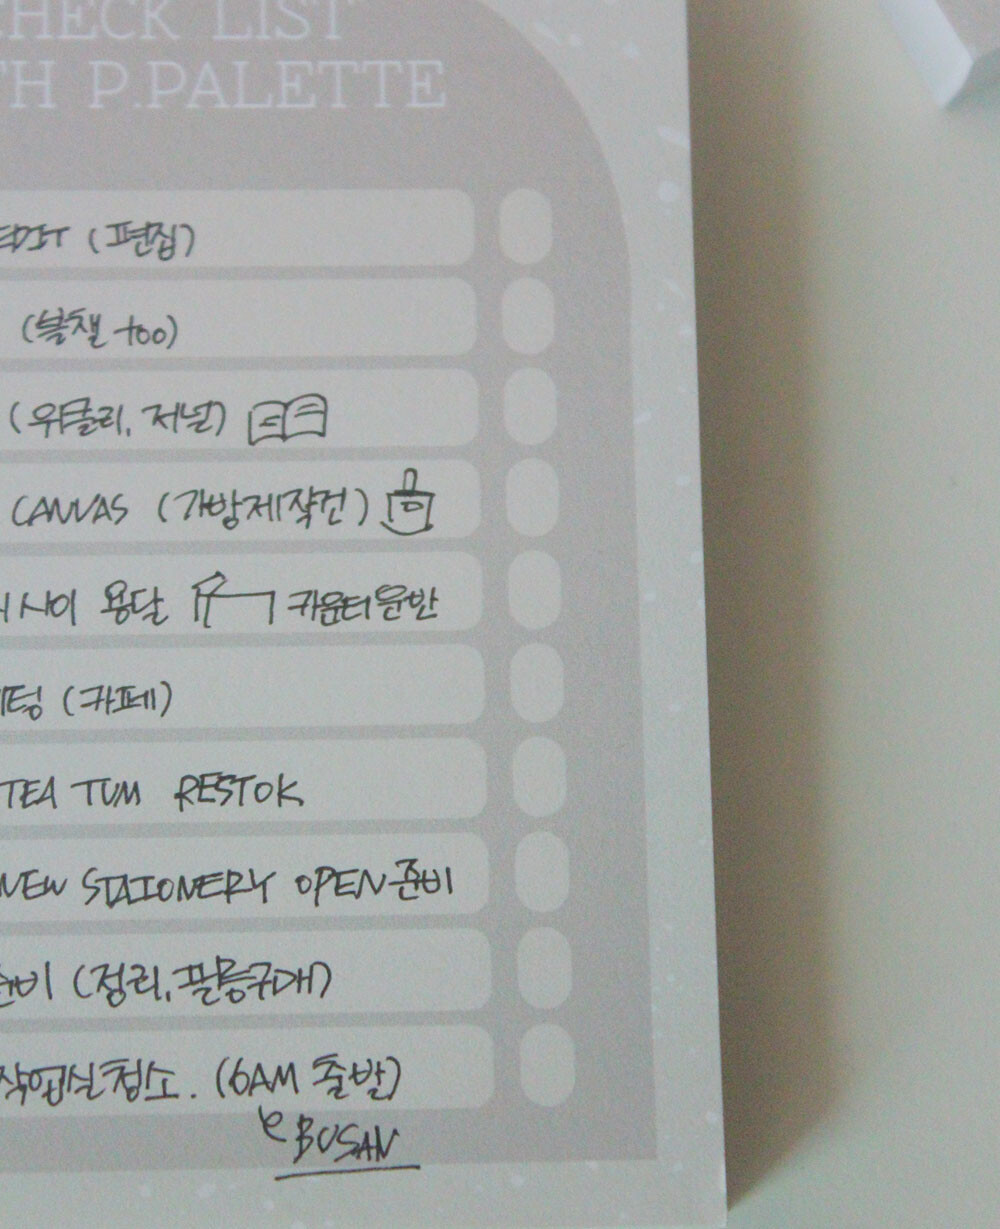 CHECK LIST
TH P.PALETTE
EDIT (편집)
(불챌 too)
(위클리, 저널)
CANVAS (가방제작건)
사이 용달 카운터운반
미팅 (카페)
TEA TUM RESTOK
NEW STAIONERY OPEN준비
준비 (정리, 물품구매)
작업실청소. (6AM 출발)
BUSAN